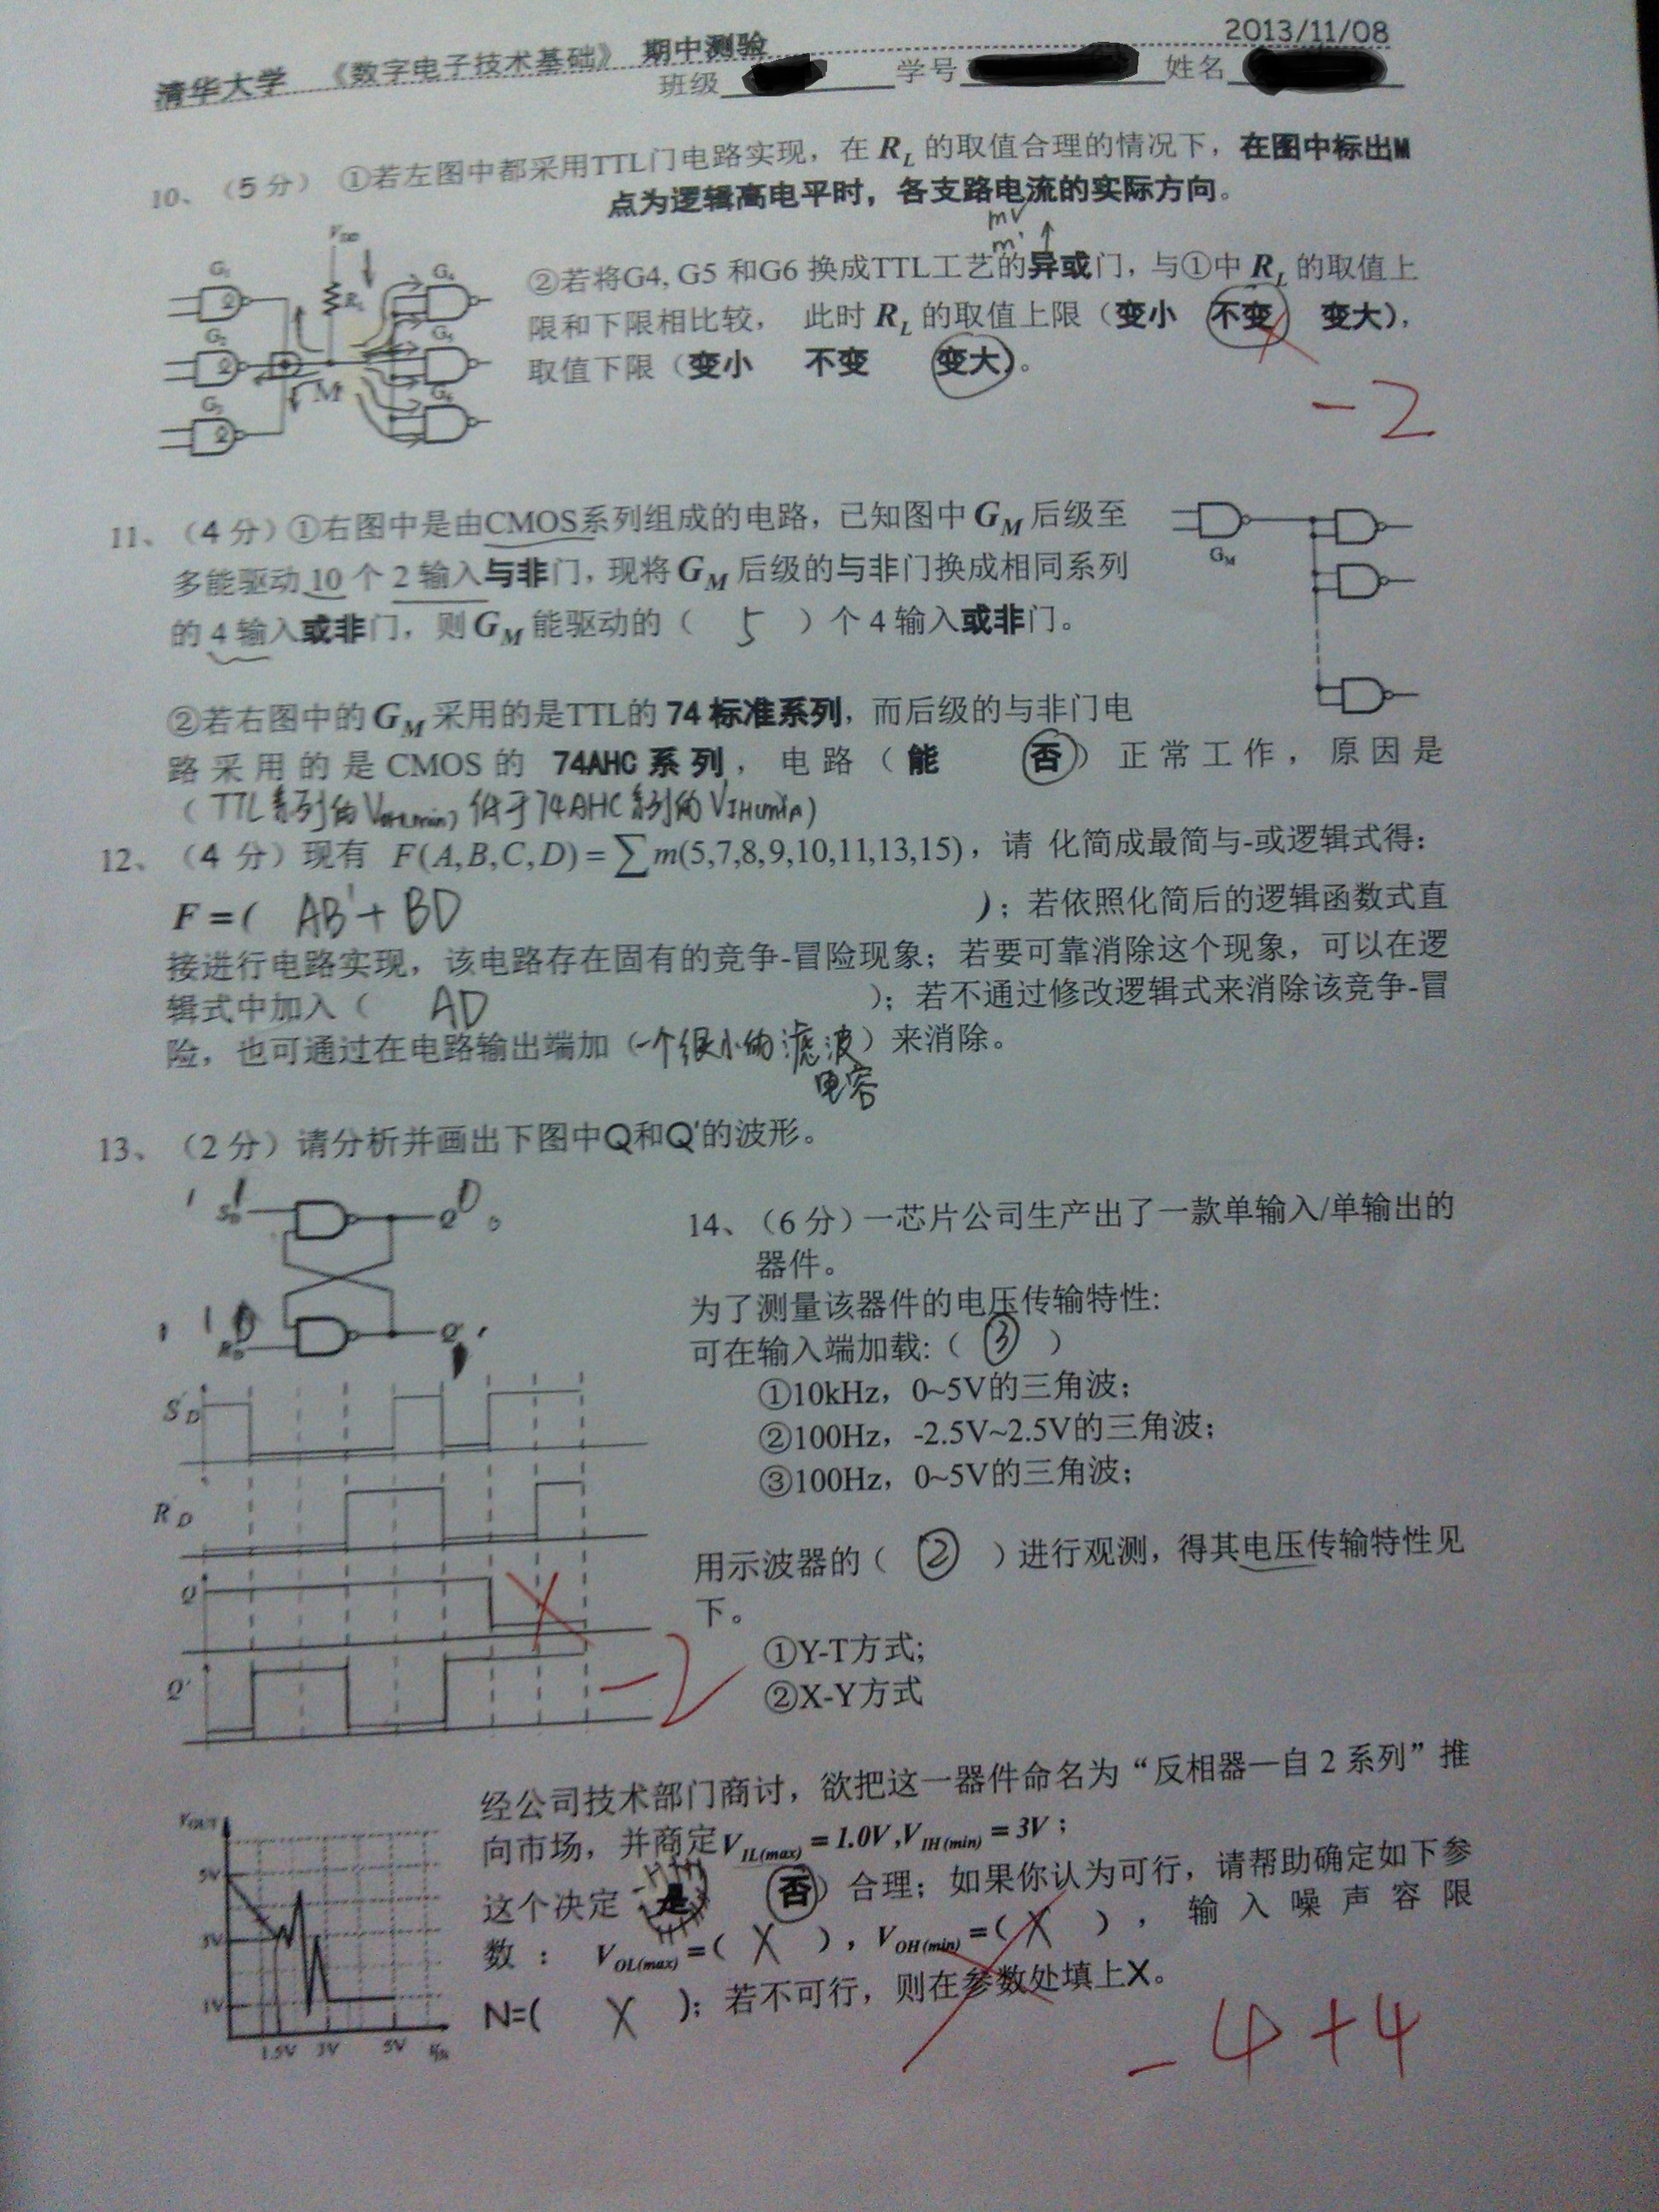 2013/11/08
清华大学 《数字电子技术基础》 期中测验
班级 学号 姓名
10、（5分） ①若左图中都采用TTL门电路实现，在 R_L 的取值合理的情况下，在图中标出M
点为逻辑高电平时，各支路电流的实际方向。
②若将G4, G5 和G6 换成TTL工艺的异或门，与①中 R_L 的取值上
限和下限相比较， 此时 R_L 的取值上限（变小 不变 变大），
取值下限（变小 不变 变大）。
G1
G2
G3
R_L
M
G4
G5
G6
-2
11、（4分）①右图中是由CMOS系列组成的电路，已知图中 G_M 后级至
多能驱动 10 个 2 输入与非门，现将 G_M 后级的与非门换成相同系列
的 4 输入或非门，则 G_M 能驱动的（ 5 ）个 4 输入或非门。
G_M
②若右图中的 G_M 采用的是TTL的 74 标准系列，而后级的与非门电
路采用的是CMOS的 74AHC 系列，电路（能 否）正常工作，原因是
（TTL系列的VOH(min) 低于74AHC系列的VIH(min)）
12、（4 分）现有 F(A,B,C,D)=∑m(5,7,8,9,10,11,13,15)，请 化简成最简与-或逻辑式得：
F =( AB'+BD )；若依照化简后的逻辑函数式直
接进行电路实现，该电路存在固有的竞争-冒险现象；若要可靠消除这个现象，可以在逻
辑式中加入（ AD ）；若不通过修改逻辑式来消除该竞争-冒
险，也可通过在电路输出端加（一个很小的滤波电容）来消除。
13、（2分）请分析并画出下图中Q和Q'的波形。
Q
Q'
S_D
R_D
Q
Q'
-2
14、（6分）一芯片公司生产出了一款单输入/单输出的
器件。
为了测量该器件的电压传输特性:
可在输入端加载:（ ③ ）
①10kHz，0~5V的三角波；
②100Hz，-2.5V~2.5V的三角波；
③100Hz，0~5V的三角波；
用示波器的（ ② ）进行观测，得其电压传输特性见
下。
①Y-T方式;
②X-Y方式
经公司技术部门商讨，欲把这一器件命名为“反相器—自 2 系列”推
向市场，并商定V_IL(max) = 1.0V ,V_IH(min) = 3V；
这个决定 是 否）合理；如果你认为可行，请帮助确定如下参
数： V_OL(max)=( X )，V_OH(min)=( X )， 输入噪声容限
N=( X )；若不可行，则在参数处填上X。
V_OUT
5V
3V
1V
1.5V 3V 5V
-4+4